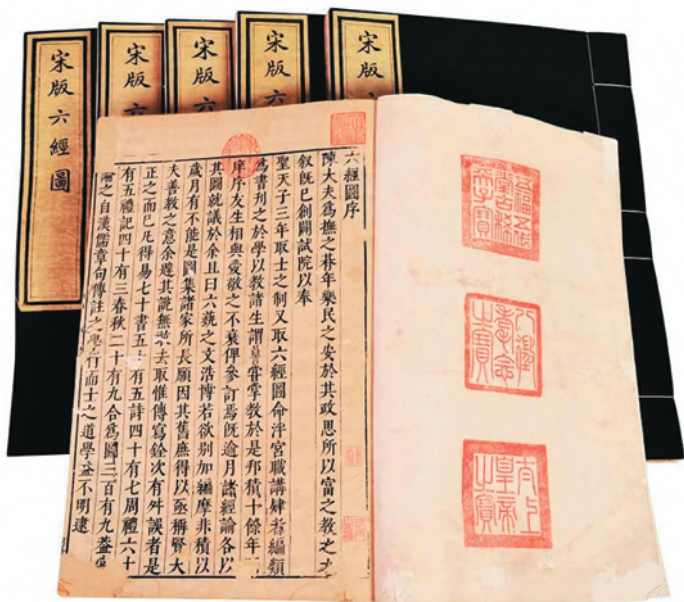 宋版六經圖
宋版六
宋版六
宋版六
宋版六
六經圖序
陳大夫為撫之朞年樂民之安於其政思所以富之教之
敘既已創闢試院以奉
聖天子三年取士之制又取六經圖命泮宮職講肄者編類
為書刊之於學以教諸生謂嘗掌教於是邦積十餘年
庠序友生相與愛敬之不衰俾參訂焉既逾月諸經論各以
其圖就議於余且曰六藝之文浩博若欲別加編摩非積以
歲月有不能是圖集諸家所長願因其舊庶得以亟稱賢大
夫善教之意余遂其說無敢去取惟傳寫銓次有舛誤者是
正之而已凡得易七十書五十有五詩四十有七周禮六十
有五禮記四十有三春秋二十有九合為圖三百有九蓋嘗
論之自漢儒章句傳註之學行而士之道學益不明逮
五福五代堂古稀天子寶
八徵耄念之寶
太上皇帝之寶